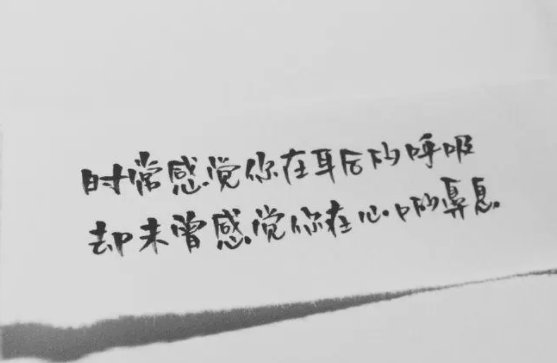 时常感觉你在耳后的呼吸
却未曾感觉你在心口的鼻息